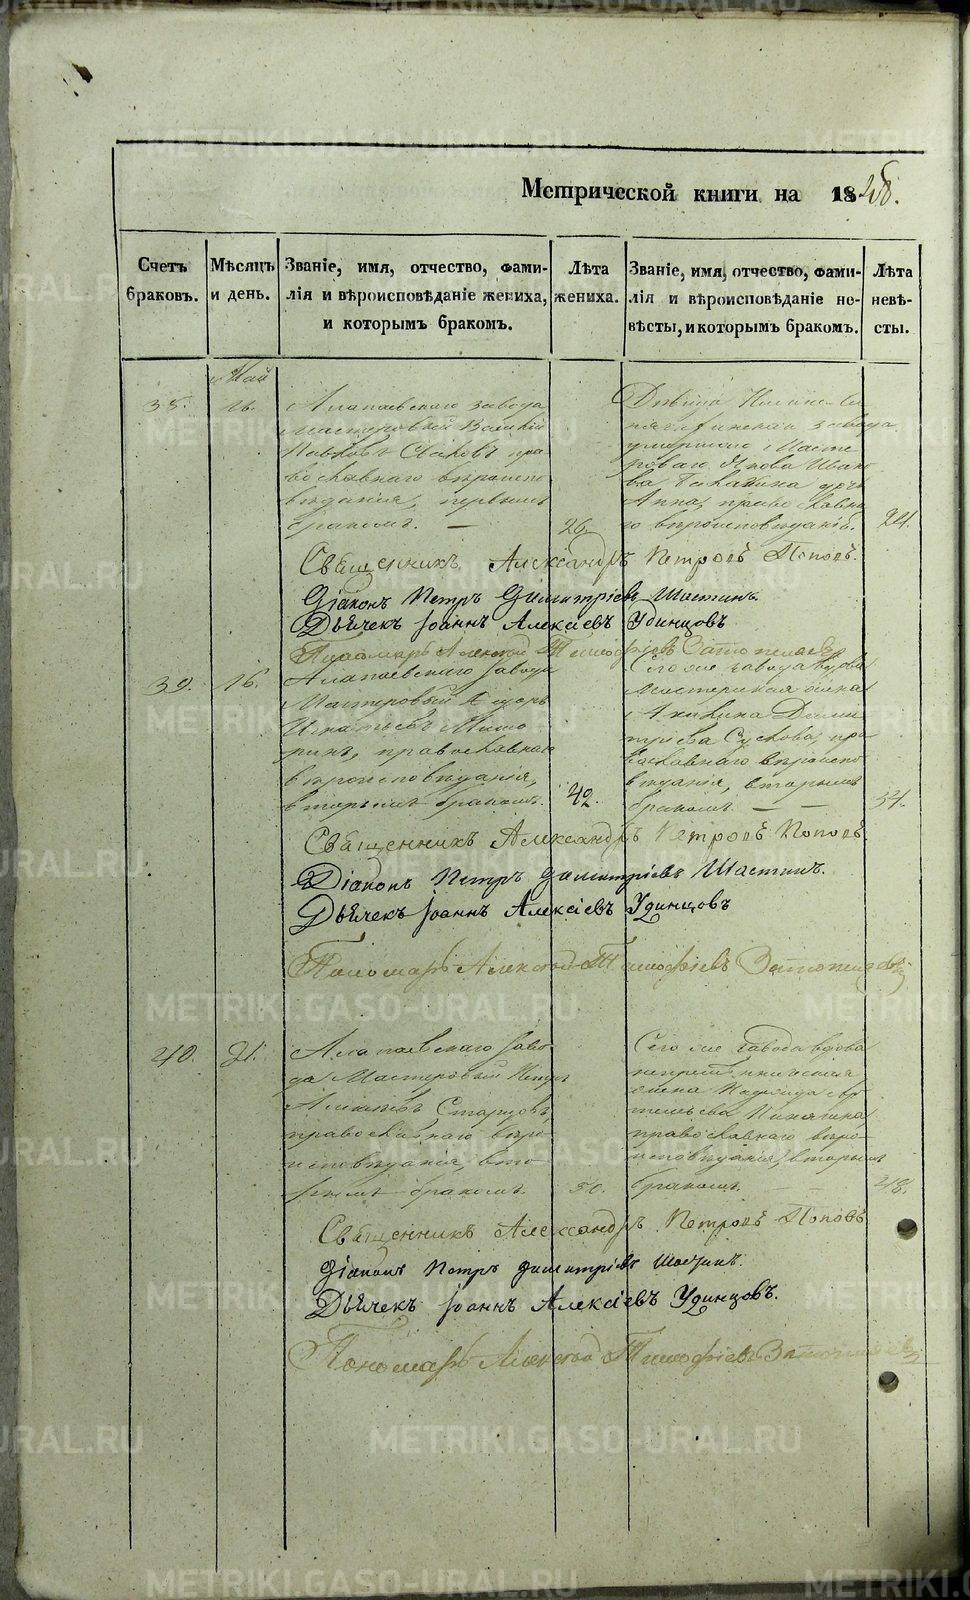 METRIKI.GASO-URAL.RU
Метрической книги на 18
Счетъ браковъ.
Мѣсяцъ и день.
Званіе, имя, отчество, фами-
лія и вѣроисповѣданіе жениха,
и которымъ бракомъ.
Лѣта жениха.
Званіе, имя, отчество, фами-
лія и вѣроисповѣданіе не-
вѣсты, и которымъ бракомъ.
Лѣта невѣ-
сты.
Май
16.
Алапаевскаго завода
Мастеровый Василій
православнаго вѣроиспо-
вѣданія, первымъ
бракомъ. —
26.
завода
умершаго Масте
роваго Якова Ивано
ва дочь
Анна, православна
го вѣроисповѣданія.
Священникъ Александръ Петровъ Поповъ.
Діаконъ Петръ Димитріевъ Шастинъ.
Дьячекъ Іоаннъ Алексіевъ Удинцовъ
Пономарь Алексѣй Тимофіевъ
39.
16.
Алапаевскаго завода
Мастеровый Егоръ
Игнатьевъ
православнаго
вѣроисповѣданія,
вторымъ бракомъ.
42.
Сего же завода вдова
Мастерская жена
Акилина Дими
тріева Сускова, пра
вославнаго вѣроиспо
вѣданія, вторымъ
бракомъ — —
34.
Священникъ Александръ Петровъ Поповъ.
Діаконъ Петръ Димитріевъ Шастинъ.
Дьячекъ Іоаннъ Алексіевъ Удинцовъ
Пономарь Алексѣй Тимофіевъ
40.
21.
Алапаевскаго заво-
да Мастеровый Петръ
Старцовъ,
православнаго вѣро
исповѣданія, вто-
рымъ бракомъ.
50.
Сего же завода вдова
жена Надежда
православнаго вѣро-
исповѣданія, вторымъ
бракомъ. — —
48.
Священникъ Александръ Петровъ Поповъ
Діаконъ Петръ Димитріевъ Шастинъ.
Дьячекъ Іоаннъ Алексіевъ Удинцовъ.
Пономарь Алексѣй Тимофіевъ